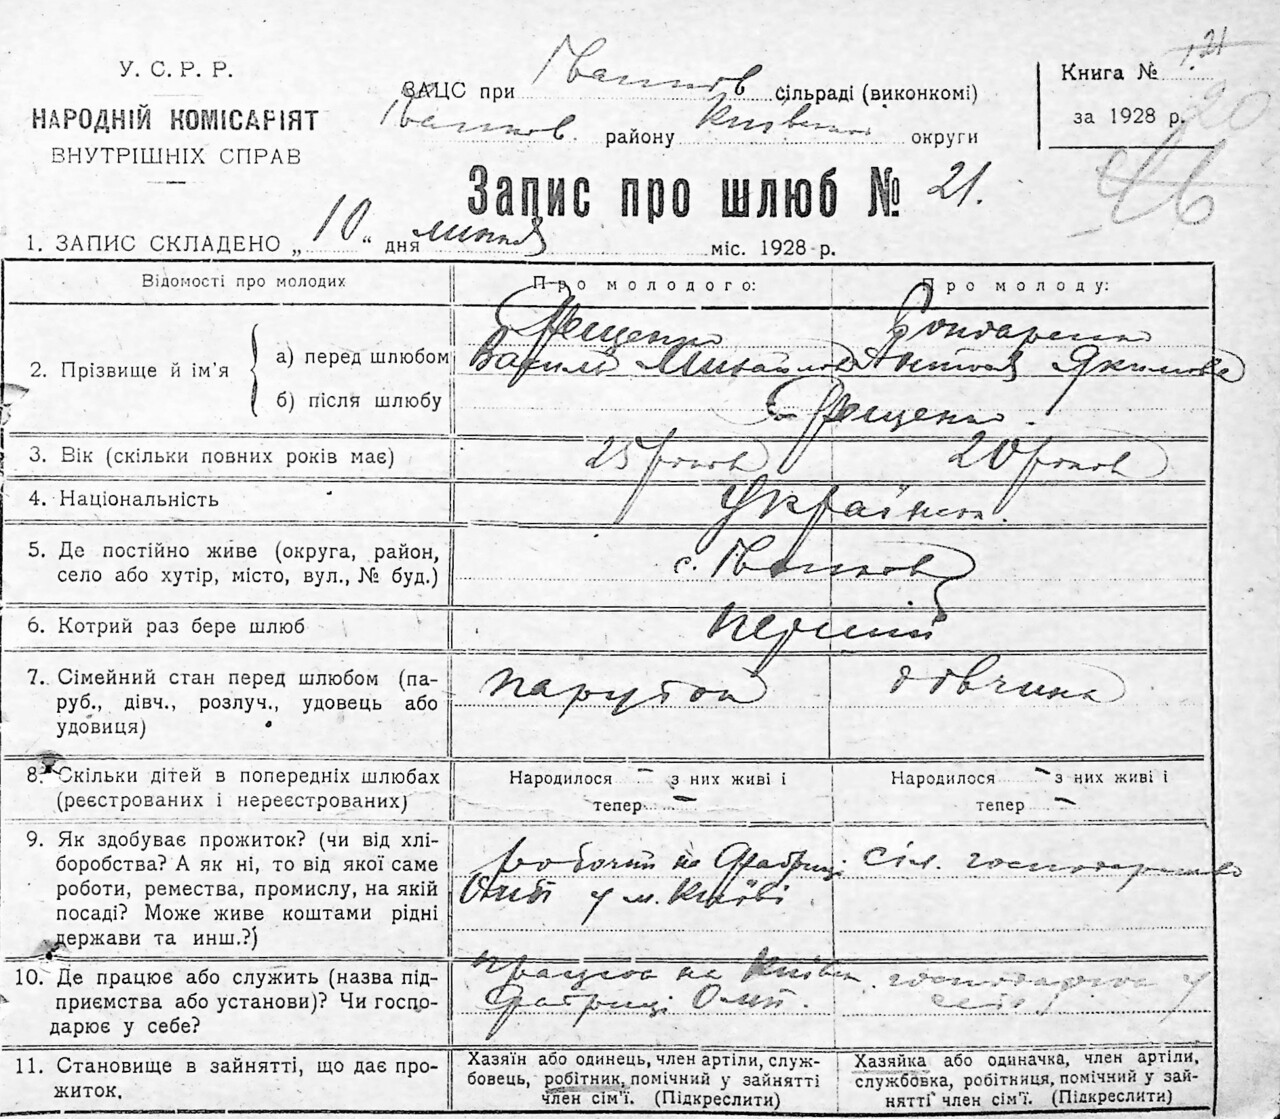 У. С. Р. Р.
НАРОДНІЙ КОМІСАРІЯТ
ВНУТРІШНІХ СПРАВ
ЗАЦС при Іванков сільраді (виконкомі)
Іванков. району Київської округи
Книга № 21
за 1928 р.
20
46
Запис про шлюб № 21.
1. ЗАПИС СКЛАДЕНО „ 10 “ дня липня міс. 1928 р.
Відомості про молодих
Про молодого:
Про молоду:
2. Прізвище й ім'я
а) перед шлюбом
б) після шлюбу
Василь Михайлов
Бондаренко
Якимова
3. Вік (скільки повних років має)
25 років
20 років
4. Національність
Україн
5. Де постійно живе (округа, район,
село або хутір, місто, вул., № буд.)
с. Іванков
6. Котрий раз бере шлюб
перший
7. Сімейний стан перед шлюбом (па-
руб., дівч., розлуч., удовець або
удовиця)
парубок
дівчина
8. Скільки дітей в попередніх шлюбах
(реєстрованих і нереєстрованих)
Народилося - з них живі і
тепер -
Народилося - з них живі і
тепер -
9. Як здобуває прожиток? (чи від хлі-
боробства? А як ні, то від якої саме
роботи, ремества, промислу, на якій
посаді? Може живе коштами рідні
держави та инш.?)
робочий на Фабриці
у м. Київі
сіл. господарство
10. Де працює або служить (назва під-
приємства або установи)? Чи госпо-
дарює у себе?
працює на Київск.
Фабриці
господарює у
селі
11. Становище в зайнятті, що дає про-
житок.
Хазяїн або одинець, член артіли, служ-
бовець, робітник, помічний у зайнятті
член сім'ї. (Підкреслити)
Хазяйка або одиначка, член артіли,
службовка, робітниця, помічний у зай-
нятті член сім'ї. (Підкреслити)